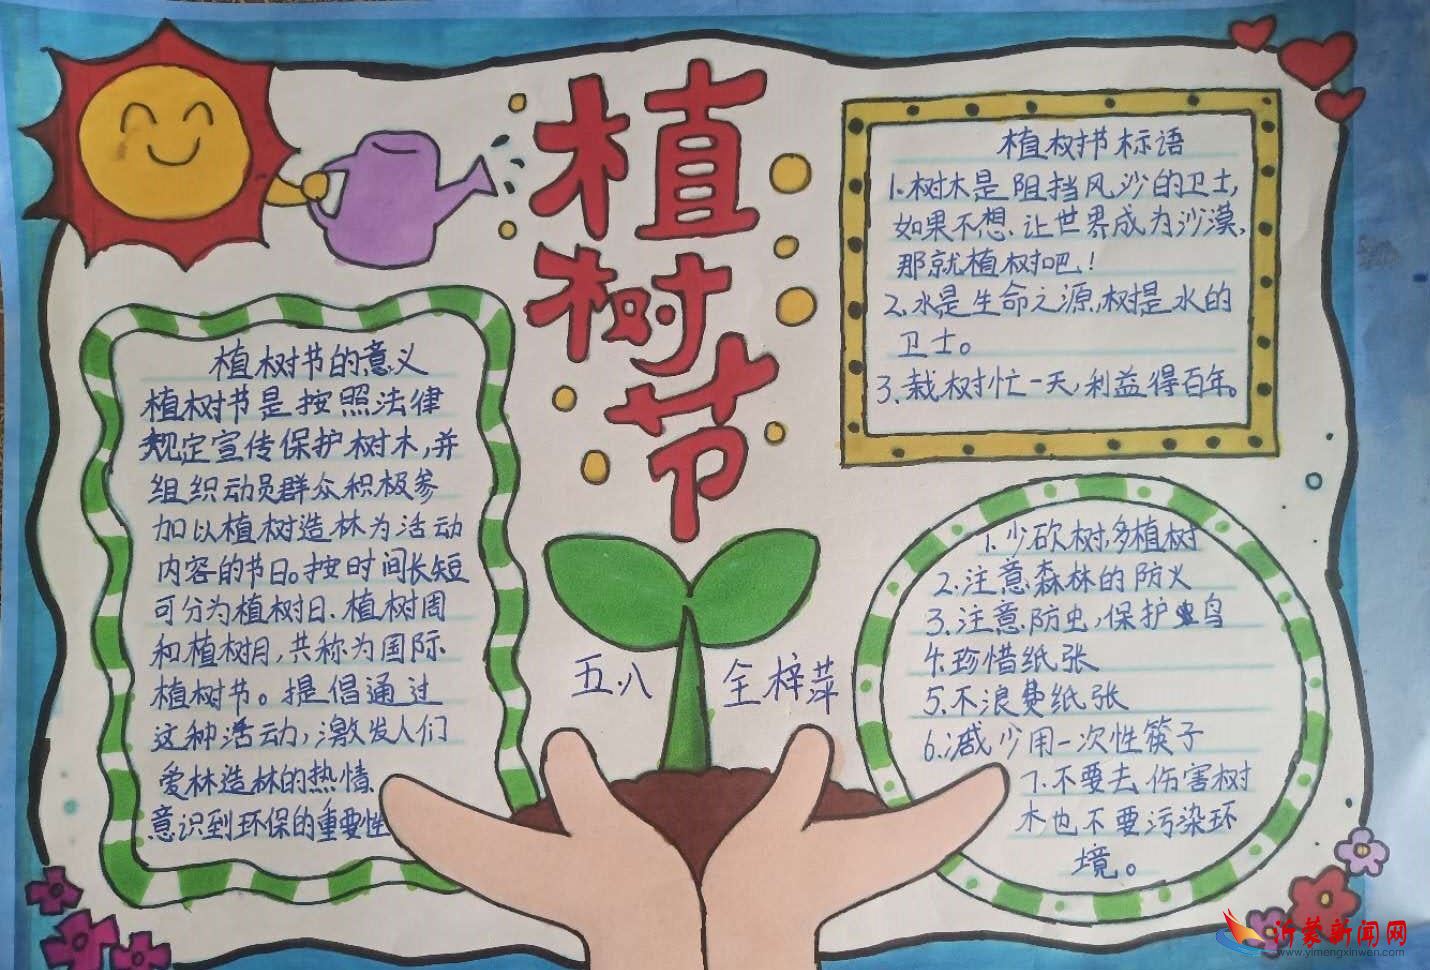 植
树
节
植树节的意义
植树节是按照法律
规定宣传保护树木,并
组织动员群众积极参
加以植树造林为活动
内容的节日。按时间长短
可分为植树日、植树周
和植树月,共称为国际
植树节。提倡通过
这种活动,激发人们
爱林造林的热情、
意识到环保的重要性
植树节标语
1.树木是阻挡风沙的卫士,
如果不想、让世界成为沙漠,
那就植树吧!
2.水是生命之源,树是水的
卫士。
3.栽树忙一天,利益得百年。
1.少砍树,多植树
2.注意森林的防火
3.注意防虫,保护鸟
4.珍惜纸张
5.不浪费纸张
6.减少用一次性筷子
7.不要去伤害树
木也不要污染环
境。
五.八 全梓萍
沂蒙新闻网
www.yimengxinwen.com